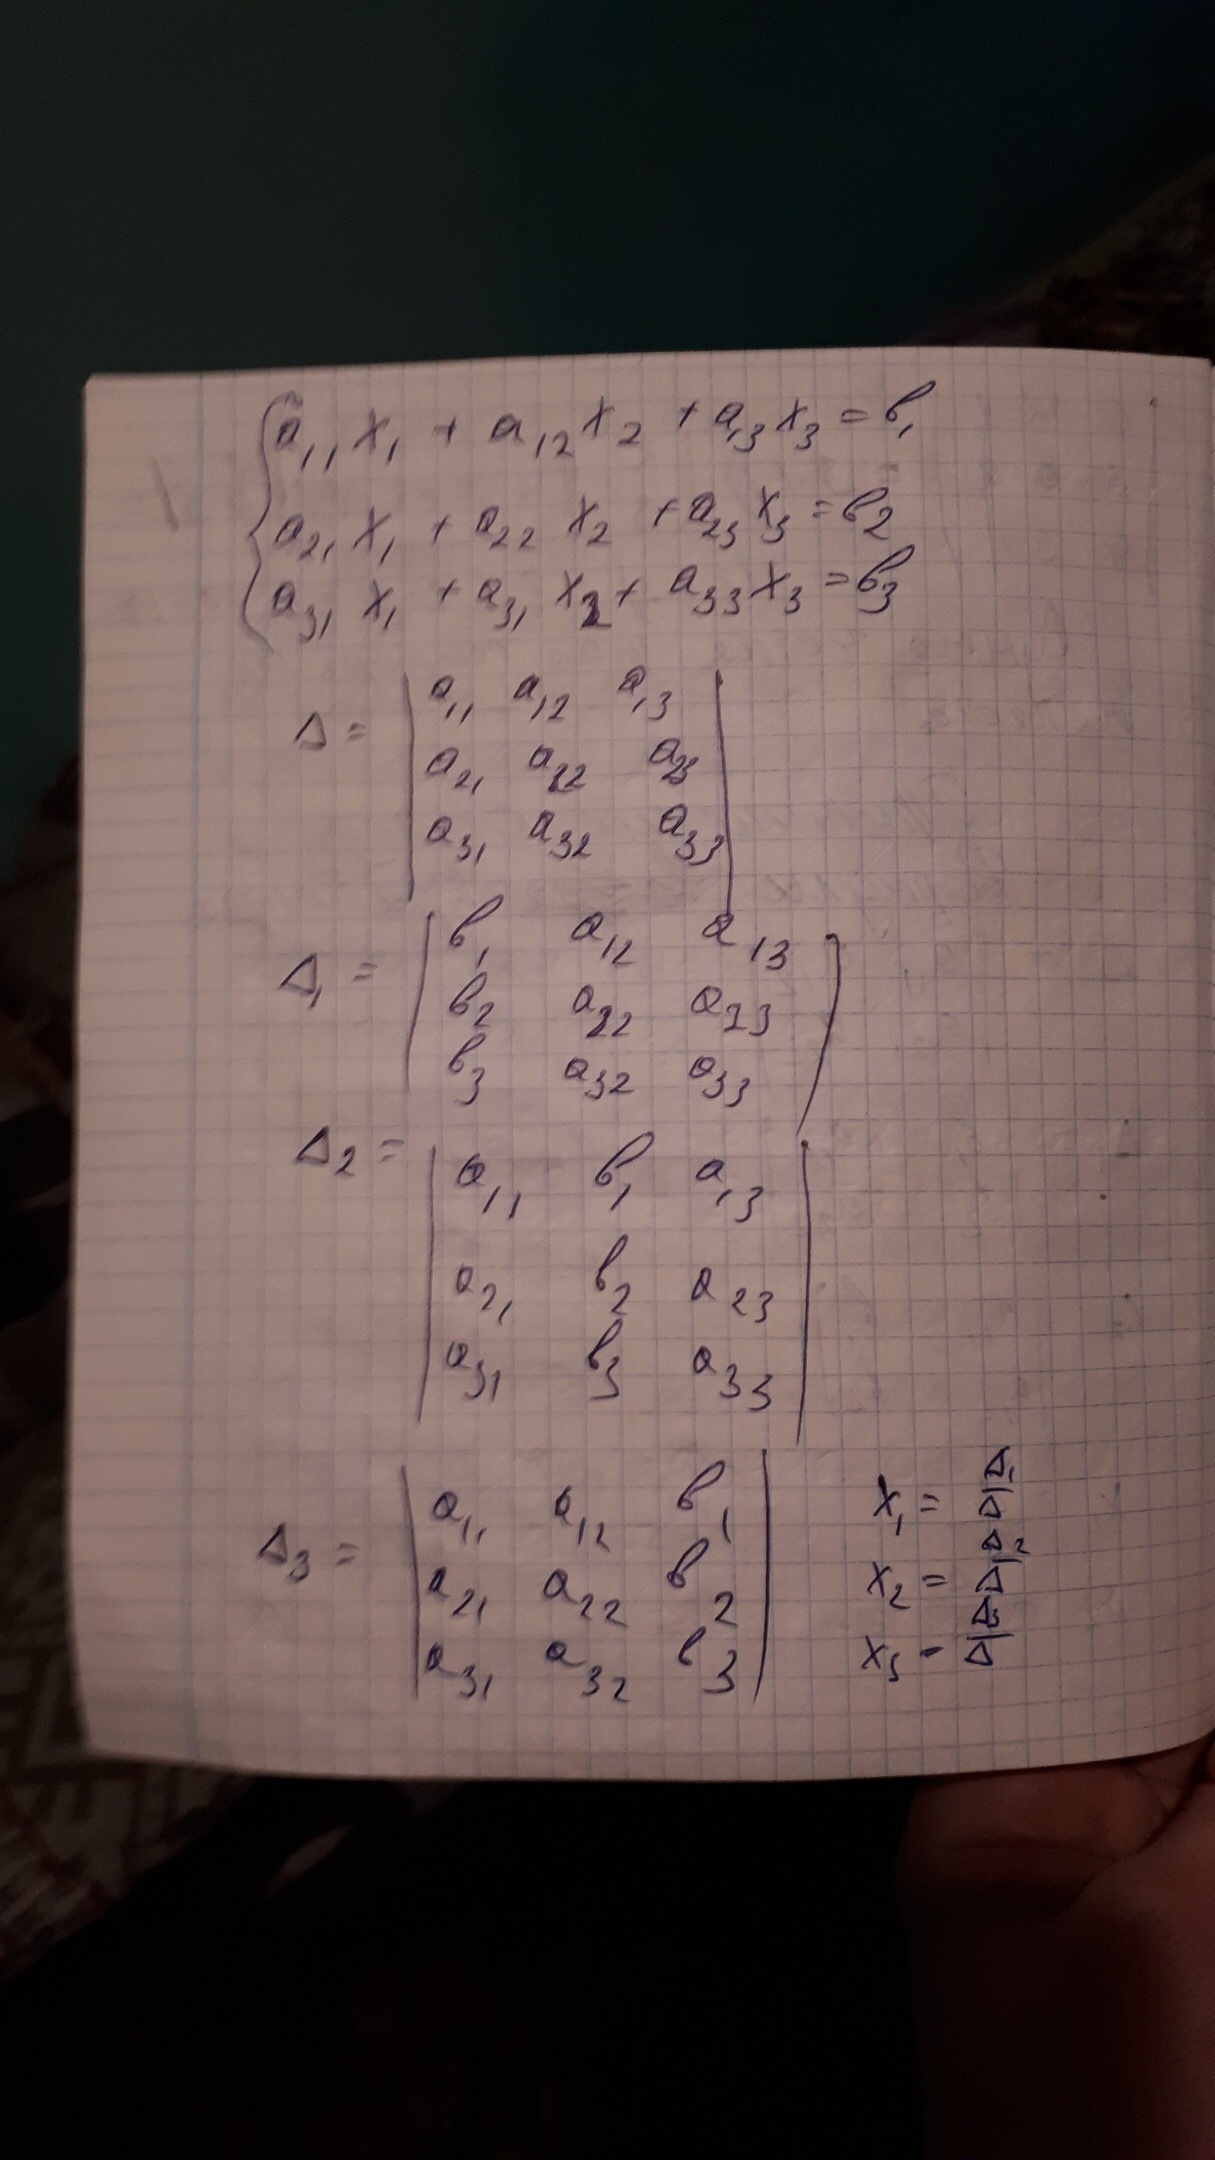 a₁₁ x₁ + a₁₂ x₂ + a₁₃ x₃ = в₁
a₂₁ x₁ + a₂₂ x₂ + a₂₃ x₃ = в₂
a₃₁ x₁ + a₃₁ x₂ + a₃₃ x₃ = в₃
Δ = | a₁₁ a₁₂ a₁₃ |
a₂₁ a₂₂ a₂₃
a₃₁ a₃₂ a₃₃
Δ₁ = | в₁ a₁₂ a₁₃ |
в₂ a₂₂ a₂₃
в₃ a₃₂ a₃₃
Δ₂ = | a₁₁ в₁ a₁₃ |
a₂₁ в₂ a₂₃
a₃₁ в₃ a₃₃
Δ₃ = | a₁₁ a₁₂ в₁ |
a₂₁ a₂₂ в₂
a₃₁ a₃₂ в₃
x₁ = Δ₁/Δ
x₂ = Δ₂/Δ
x₃ = Δ₃/Δ